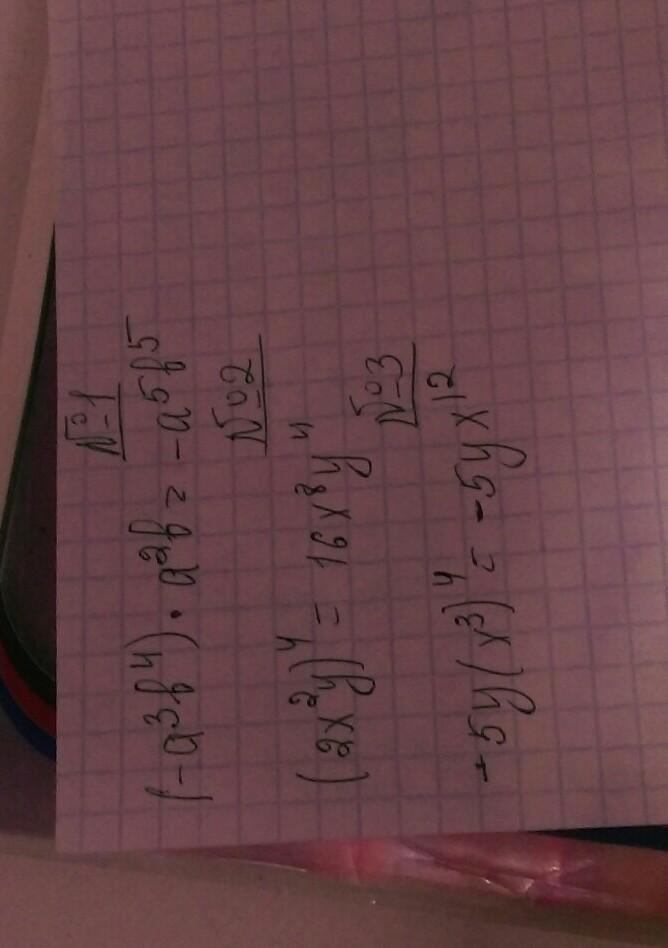 №1
(-a³b⁴) · a²b = -a⁵b⁵
№2
(2x²y)⁴ = 16x⁸y⁴
№3
-5y(x³)⁴ = -5yx¹²